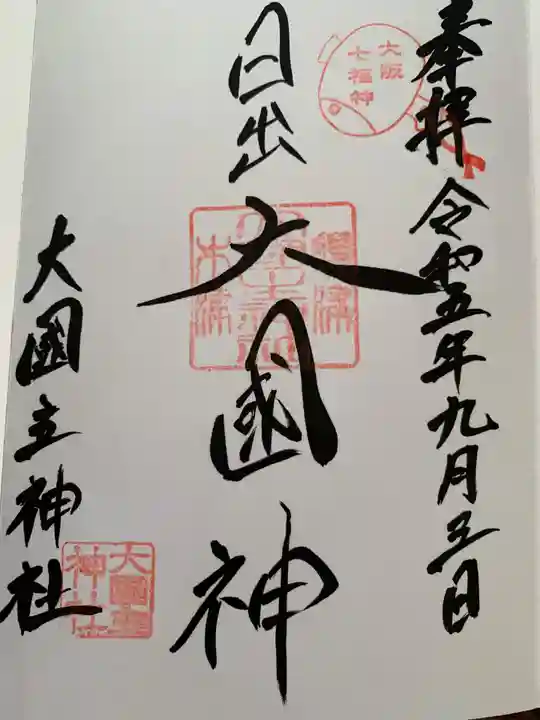 奉拝 令和五年九月三日
大阪
七福神
日出大國神
大国主神社
大國主
神社